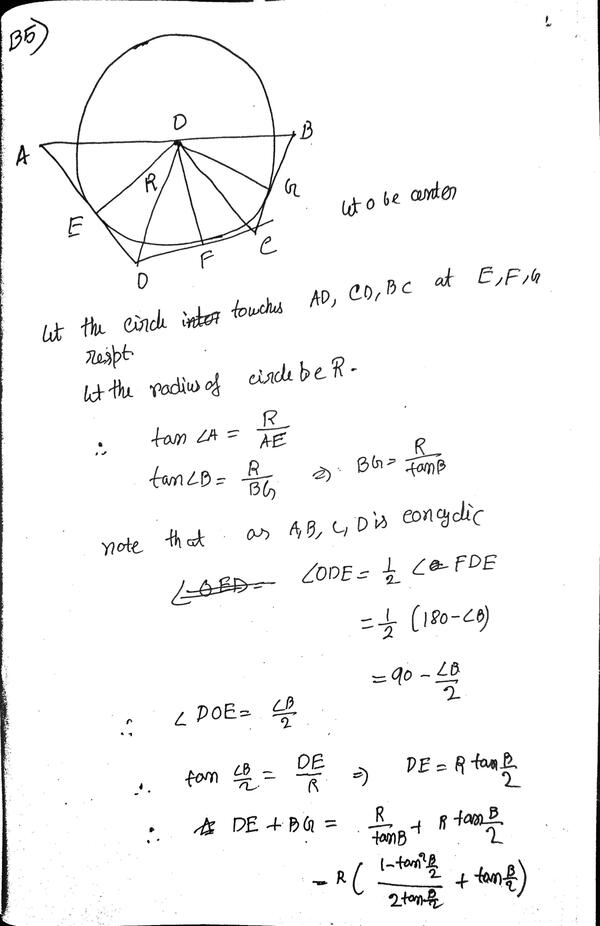 B5)
O
B
A
R
G
E
C
F
D
let O be center
let the circle touches AD, CD, BC at E, F, G
respt.
let the radius of circle be R.
∴ tan ∠A = R/AE
tan ∠B = R/BG ⇒ BG = R/tanB
note that as A, B, C, D is concyclic
∠OED = ∠ODE = 1/2 ∠ FDE
= 1/2 (180 - ∠B)
= 90 - ∠B/2
∴ ∠DOE = ∠B/2
∴ tan ∠B/2 = DE/R ⇒ DE = R tan B/2
∴ DE + BG = R/tanB + R tan B/2
= R ( (1-tan² B/2)/(2tan B/2) + tan B/2 )